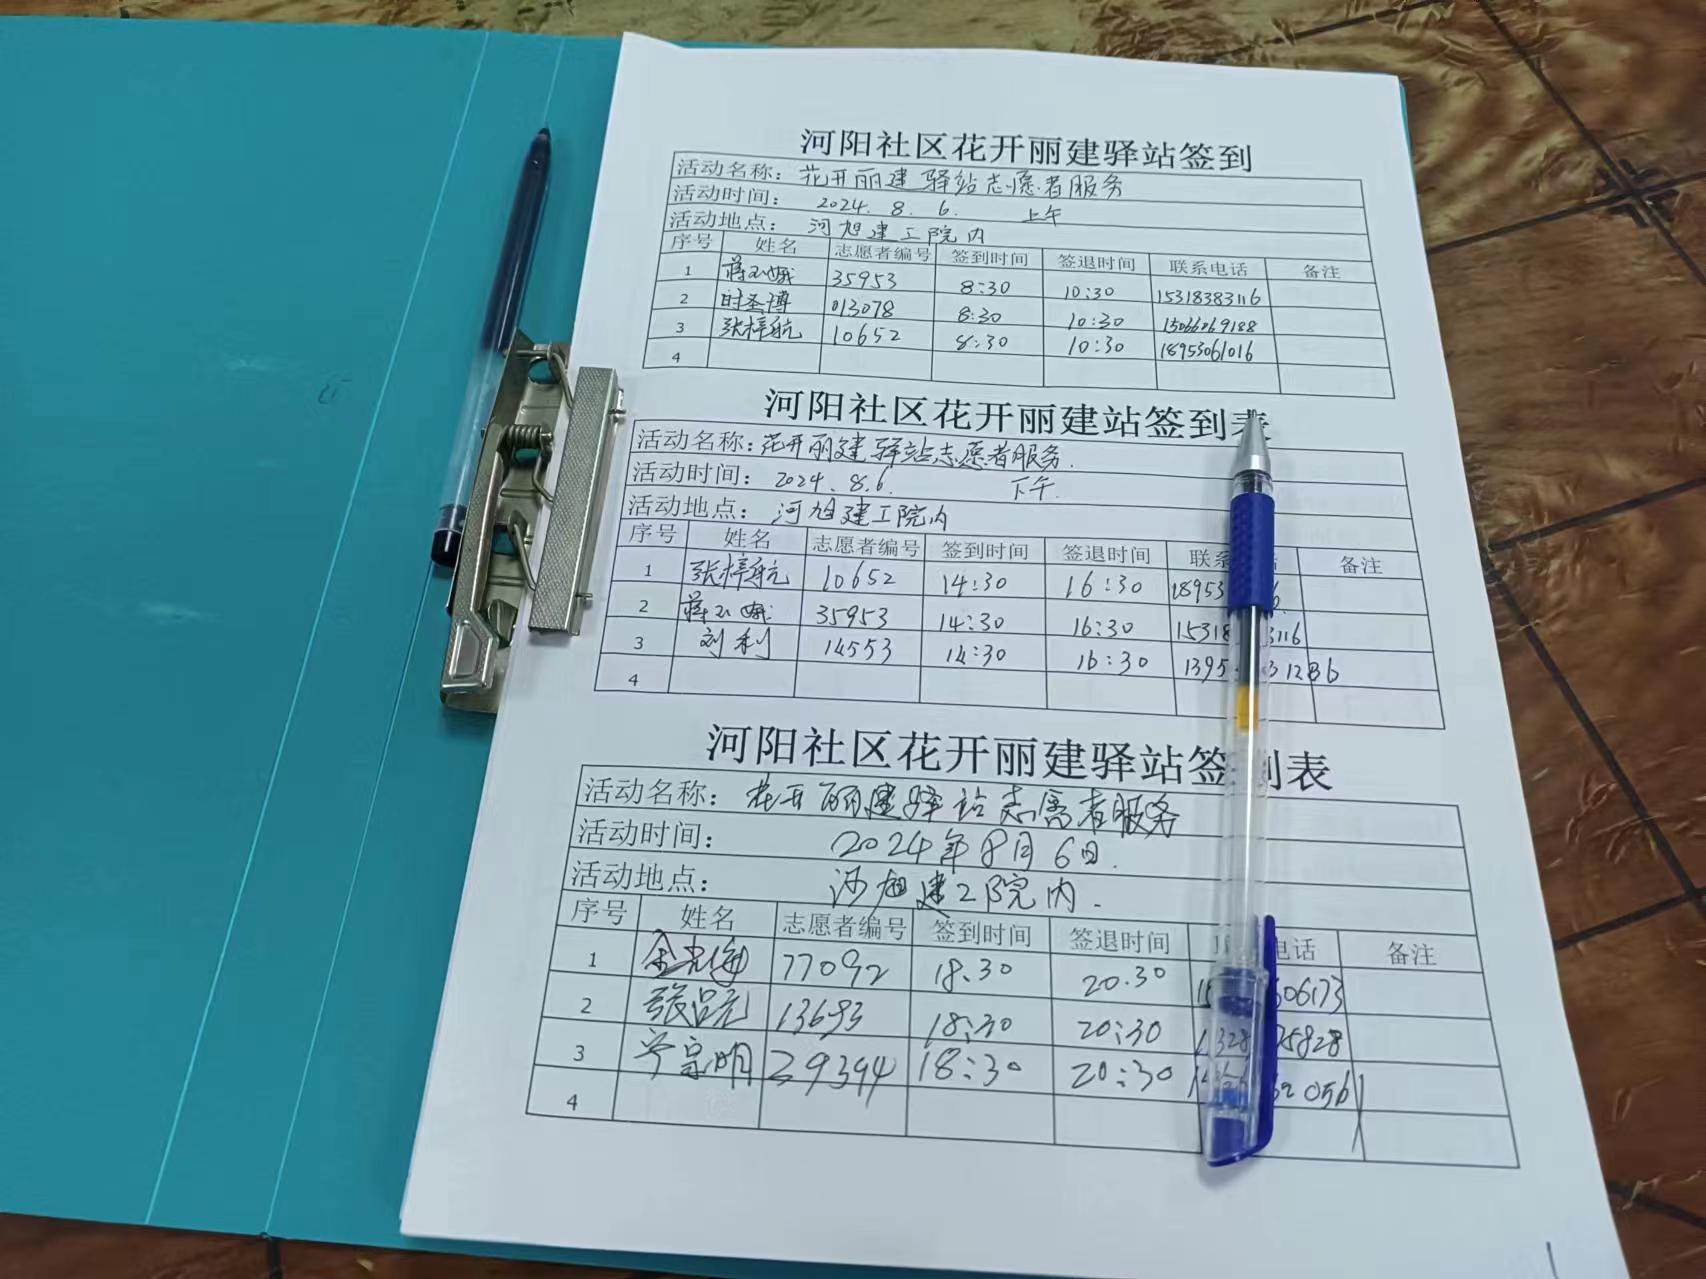 河阳社区花开丽建驿站签到
活动名称：花开丽建驿站志愿者服务
活动时间： 2024. 8. 6. 上午
活动地点： 河旭建工院内
序号 姓名 志愿者编号 签到时间 签退时间 联系电话 备注
1 35953 8:30 10:30 15318383116
2 时圣博 013078 8:30 10:30 15066069188
3 张梓航 10652 8:30 10:30 18953061016
4
河阳社区花开丽建驿站签到表
活动名称：花开丽建驿站志愿者服务.
活动时间： 2024. 8.6. 下午.
活动地点： 河旭建工院内
序号 姓名 志愿者编号 签到时间 签退时间 联系 话 备注
1 张梓航 10652 14:30 16:30 18953 6.
2 35953 14:30 16:30 15318 3116
3 刘利 14553 14:30 16:30 1395 31286
4
河阳社区花开丽建驿站签到表
活动名称：花开丽建驿站志愿者服务
活动时间： 2024年8月6日.
活动地点： 河旭建工院内.
序号 姓名 志愿者编号 签到时间 签退时间 电话 备注
1 77092 18:30 20:30 306173
2 张吕元 13693 18:30 20:30 1328 75828
3 宁宗明 29394 18:30 20:30 62056
4